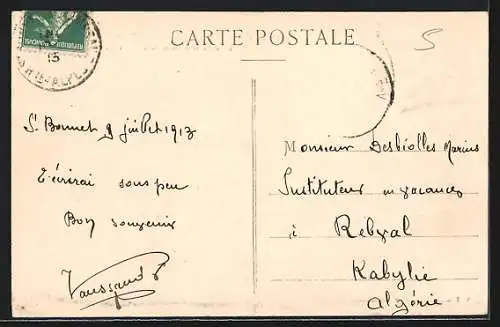 RÉPUBLIQUE FRANÇAISE
CARTE POSTALE
5
St Bonnet 9 juillet 1913
T'écrirai sous peu
Bon souvenir
Monsieur Desbiolles Marius
Instituteur en vacances
à Rebval
Kabylie
Algérie